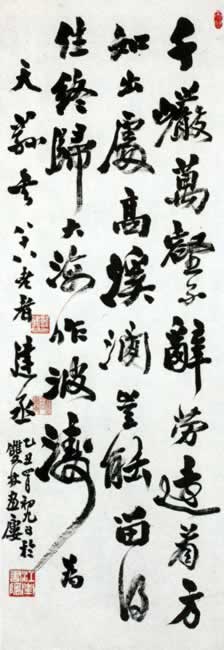 千巖萬壑不辭勞遠看方
知出處高溪澗豈能留得
住終歸大海作波濤 為
天 八十八老者建丞
乙丑 初九日於
雙林畫廔